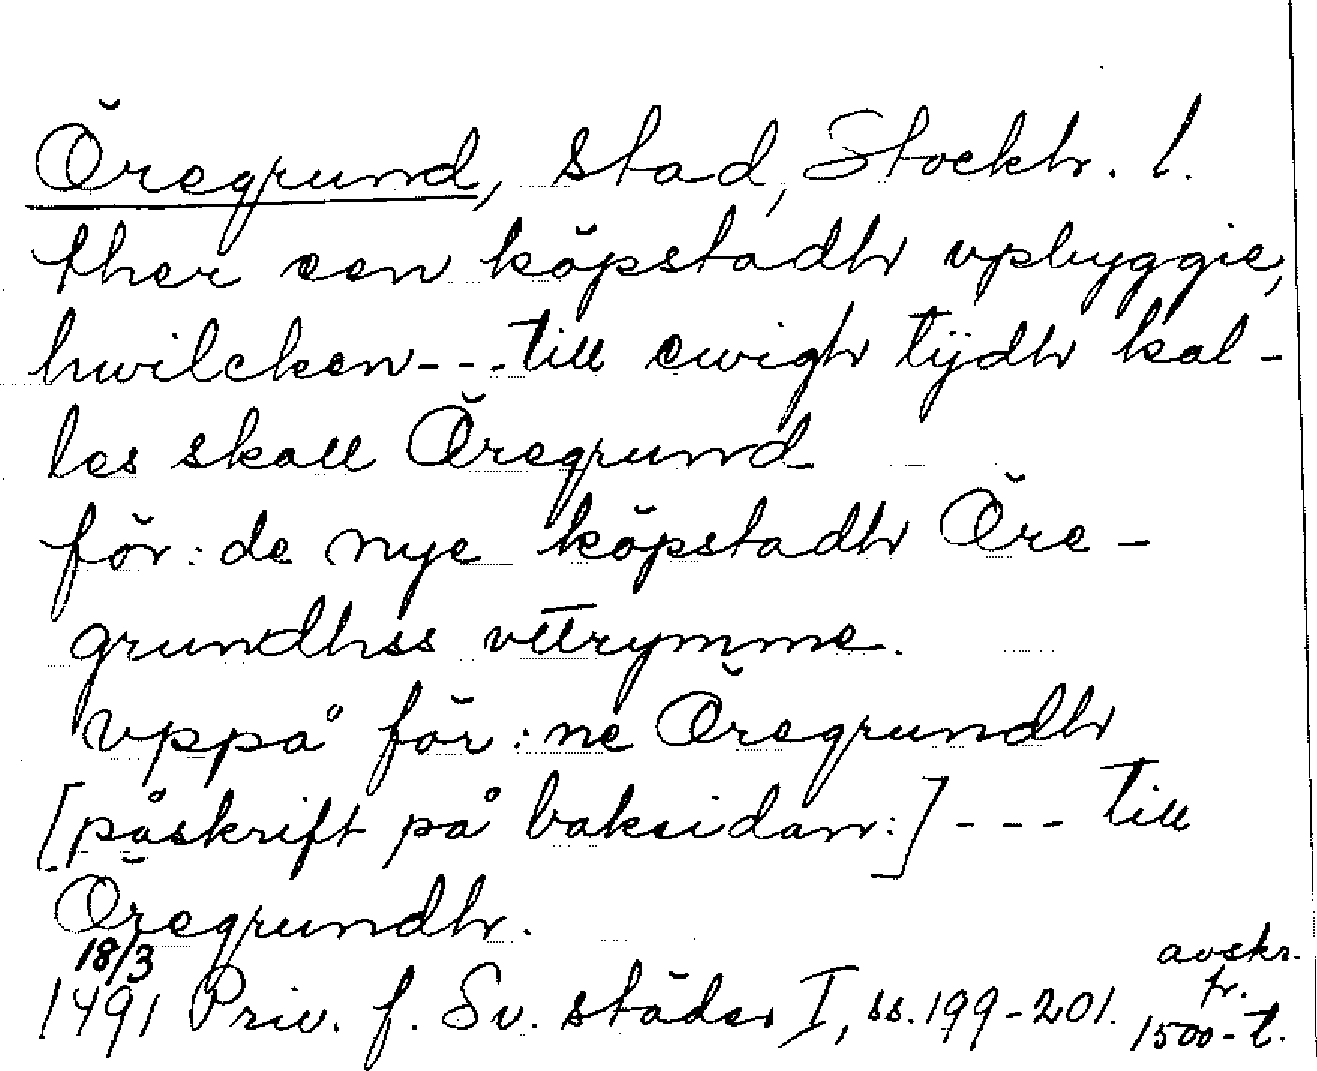 Öregrund, stad, Stockh. l.
ther een köpstadh vpbyggie,
hwilcken - - - till ewigh tijdh kal-
les skall Öregrund
för: de nye köpstadh Öre-
grundhss vttrymme.
Vppå för: ne Öregrundh
[påskrift på baksidan:] - - - till
Öregrundh.
18/3
1491 Priv. f. Sv. städer I, ss. 199-201.
avskr.
fr.
1500-t.